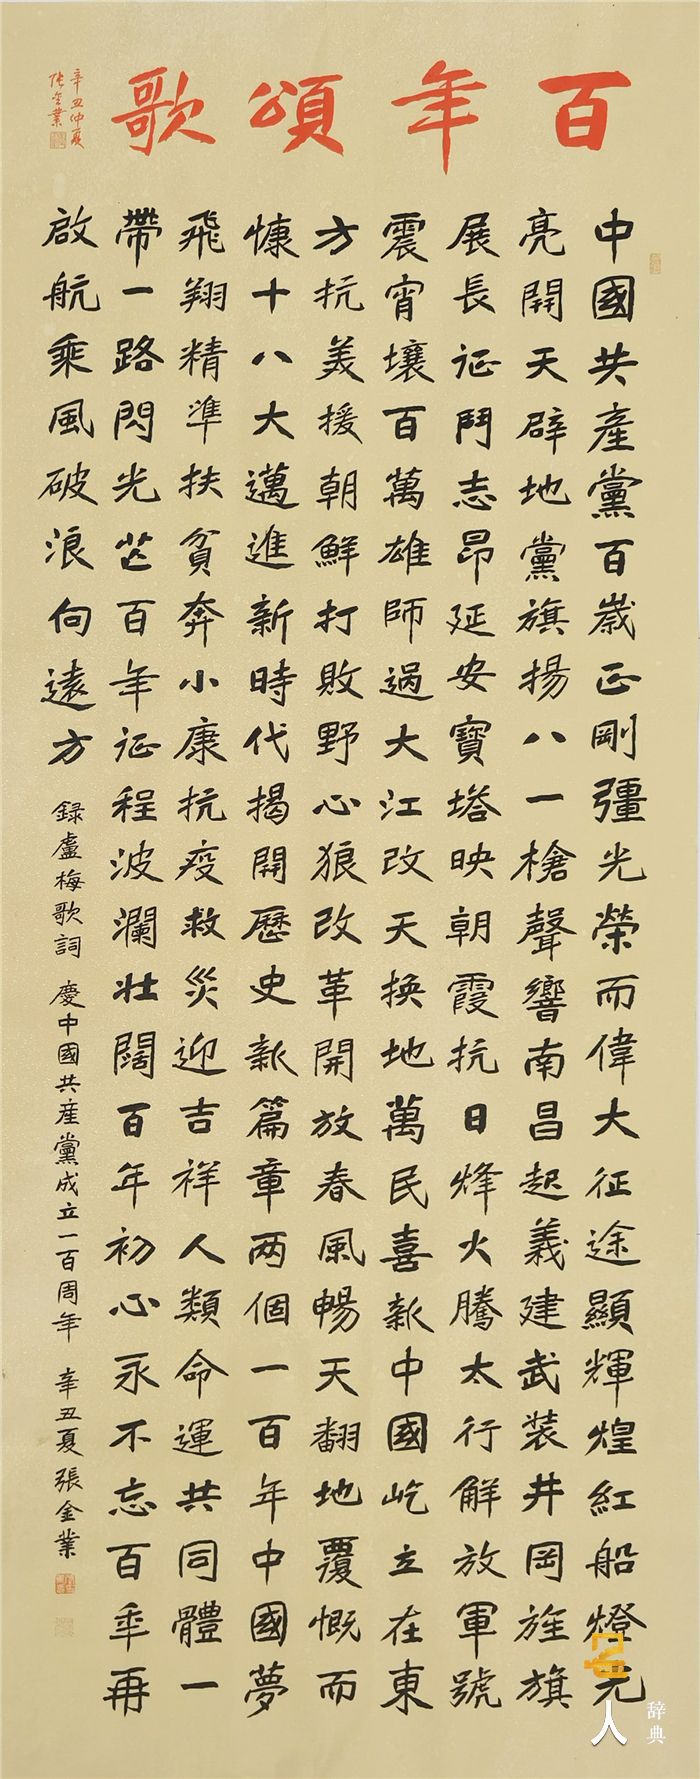 百年頌歌
辛丑仲夏
張金業
中國共產黨百歲正剛彊光榮而偉大征途顯輝煌紅船燈光
亮開天辟地黨旗揚八一槍聲響南昌起義建武装井岡旌旗
展長征鬥志昂延安寶塔映朝霞抗日烽火騰太行解放軍號
震宵壤百萬雄師過大江改天換地萬民喜新中國屹立在東
方抗美援朝鮮打敗野心狼改革開放春風暢天翻地覆慨而
慷十八大邁進新時代揭開歷史新篇章两個一百年中國夢
飛翔精準扶貧奔小康抗疫救災迎吉祥人類命運共同體一
帶一路閃光芒百年征程波瀾壯闊百年初心永不忘百年再
啟航乘風破浪向遠方
録盧梅歌詞 慶中國共産黨成立一百周年 辛丑夏張金業
人
辞典